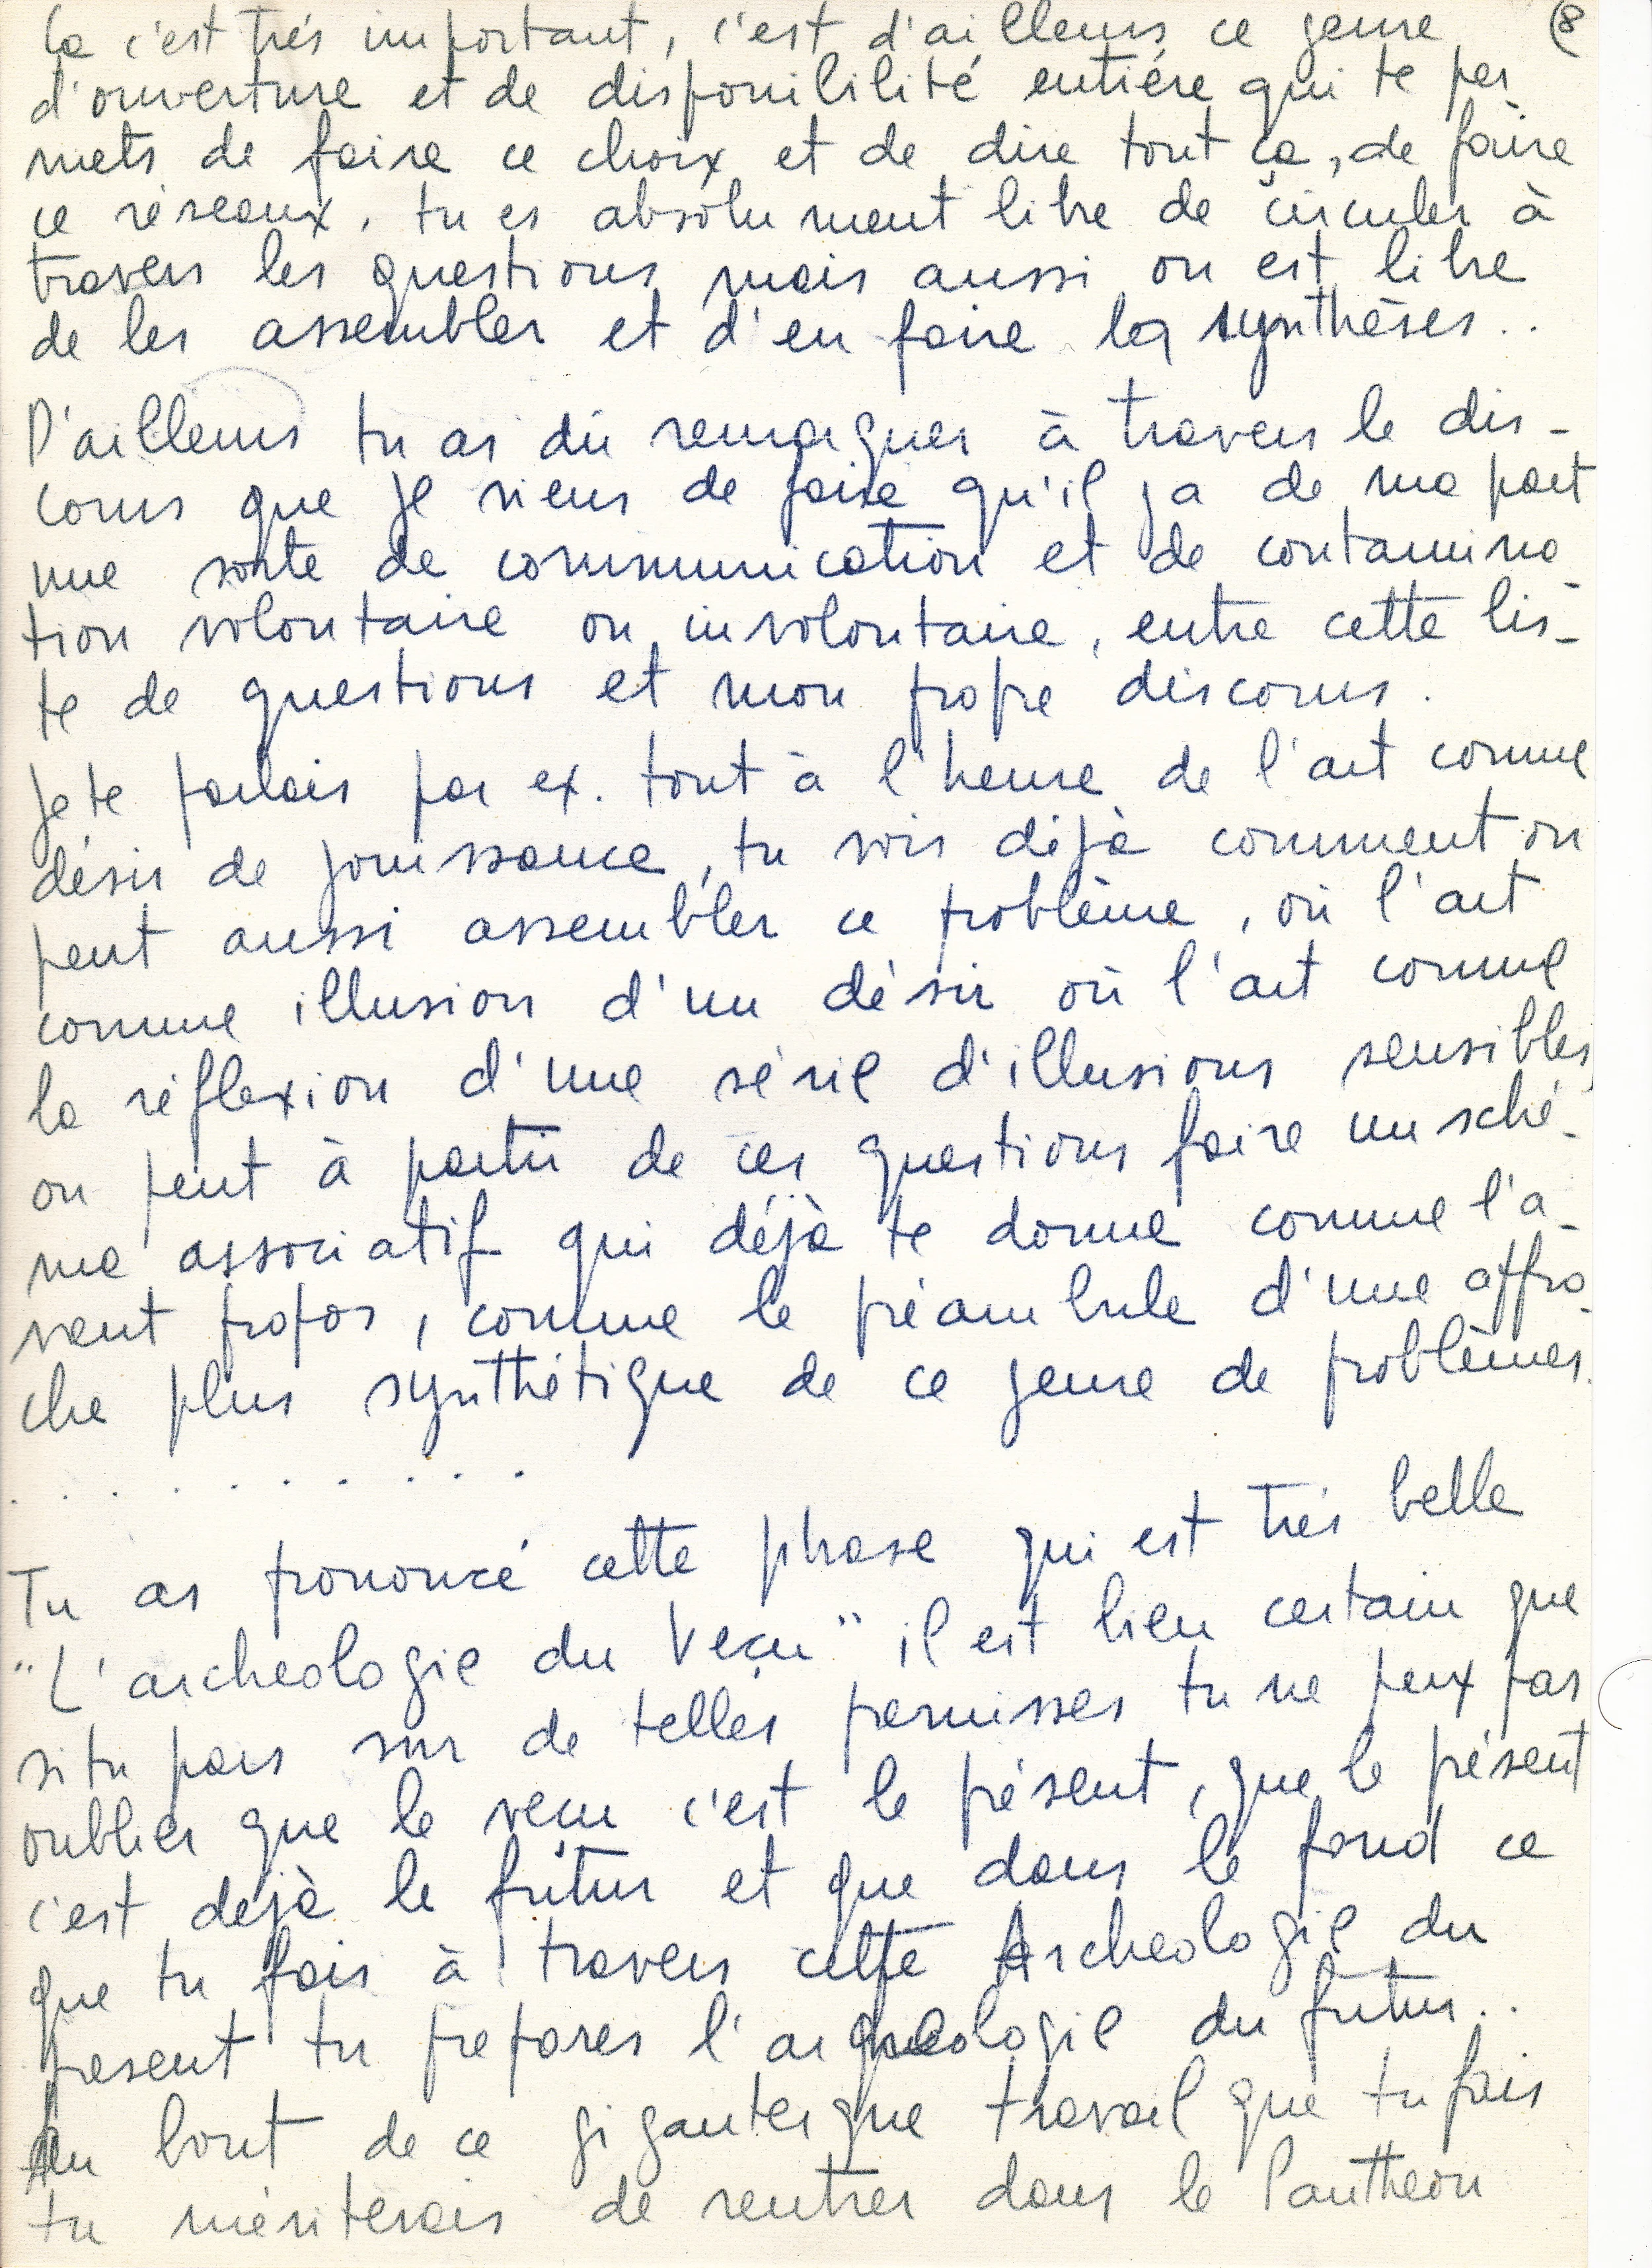 Ça c'est trés important, c'est d'ailleurs ce genre (8
d'ouverture et de disponibilité entiére qui te per
mets de faire ce choix et de dire tout ça, de faire
ce réseaux. tu es absolument libre de circuler à
travers les questions mais aussi on est libre
de les assembler et d'en faire la synthèses..
D'ailleurs tu as dû remarquer à travers le dis-
cours que je viens de faire qu'il ya de ma part
une sorte de communication et de contamina-
tion volontaire ou involontaire, entre cette lis-
te de questions et mon propre discours.
Je te parlais par ex. tout à l'heure de l'art comme
désir de jouissance, tu vois déjà comment on
peut aussi assembler ce problème, où l'art
comme illusion d'un désir où l'art comme
la réflexion d'une série d'illusions sensibles,
on peut à partir de ces questions faire un sché-
ma associatif qui déjà te donne comme l'a-
vant propos, comme le préambule d'une appro-
che plus synthétique de ce genre de problèmes.
. . . . . . . . . .
Tu as prononcé cette phrase qui est trés belle
"L'archeologie du Veçu" il est bien certain que
si tu pars sur de telles permisses tu ne peux pas
oublier que le veçu c'est le présent, que le présent
c'est dejà le futur et que dans le fond ce
que tu fais à travers cette Archeologie du
present tu prepares l'arqueologie du futur..
Au bout de ce gigantesque travail que tu fais
tu mériterais de rentrer dans le Pantheon